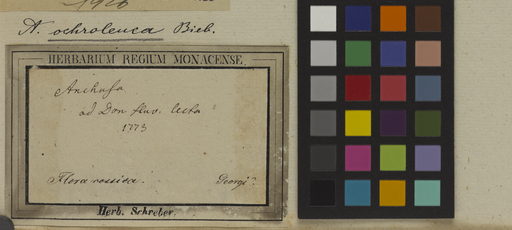 1926
A. ochroleuca Bieb.
HERBARIUM REGIUM MONACENSE.
Anchusa
ad Don fluv. lecta
1773
Flora rossica.
Georgi.
Herb. Schreber.